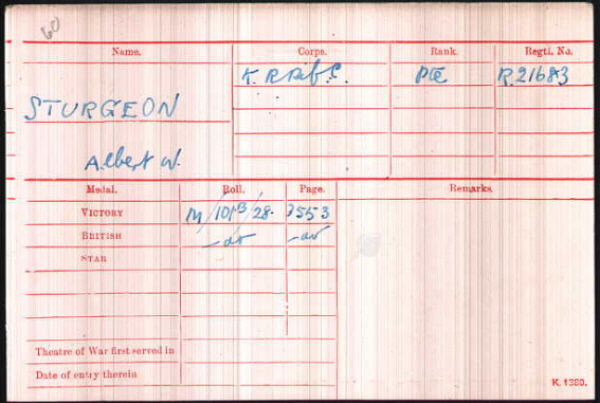 60
Name. Corps. Rank. Regtl. No.
K. R Rif. C. Pte R.21683
STURGEON
Albert W.
Medal. Roll. Page. Remarks.
VICTORY M/101B/28. 3553
BRITISH -do- -do-
STAR
Theatre of War first served in
Date of entry therein
K. 1380.